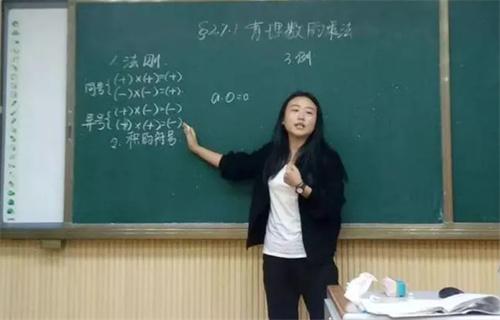 §2.7.1 有理数的乘法
1. 法则
同号{(+)×(+)=(+)
(-)×(-)=(+)
异号{(+)×(-)=(-)
(+)×(+)=(-)
2. 积的符号
a·0=0
3. 例